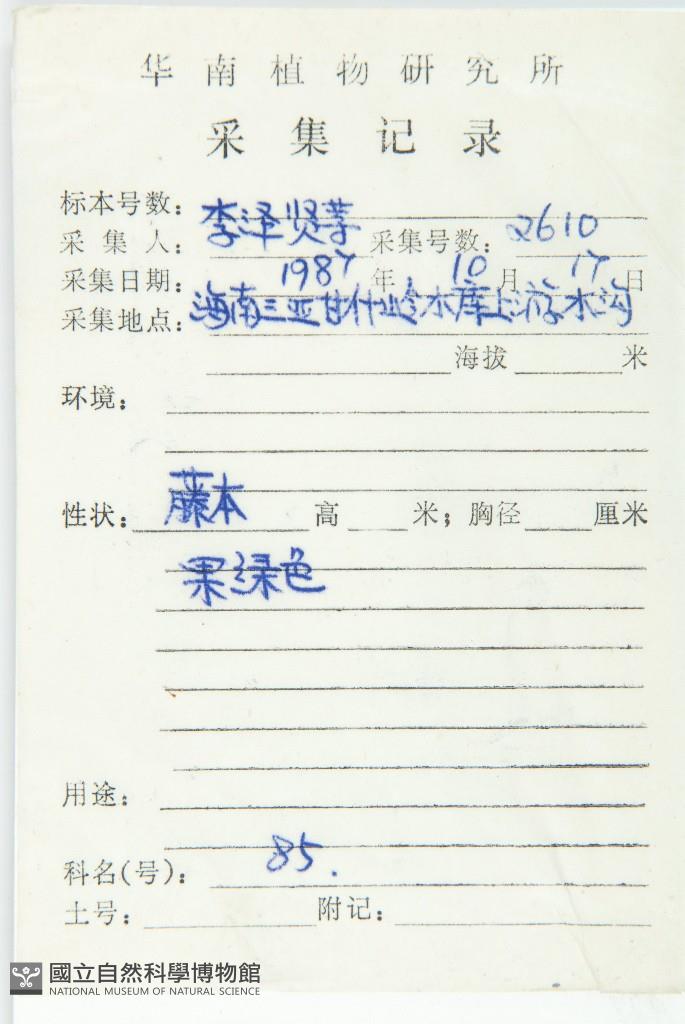 华南植物研究所
采集记录
标本号数：
采集人： 李泽贤等 采集号数： 2610
采集日期： 1987年 10月 17日
采集地点： 海南三亚甘什岭水库上游水沟
海拔 米
环境：
性状： 藤本 高 米；胸径 厘米
果绿色
用途：
科名(号)： 85.
土号： 附记：
國立自然科學博物館
NATIONAL MUSEUM OF NATURAL SCIENCE